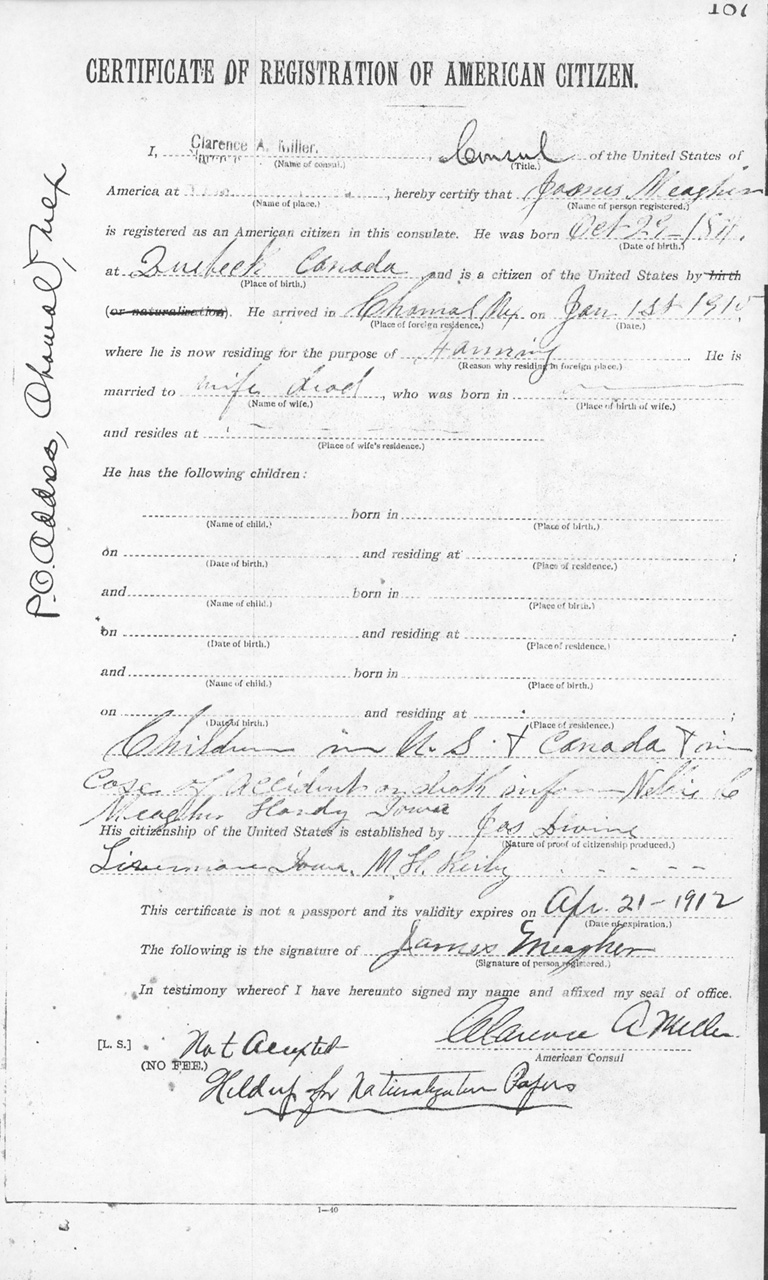 187
CERTIFICATE OF REGISTRATION OF AMERICAN CITIZEN.
I, Clarence A. Miller, Consul of the United States of
(Name of consul.) (Title.)
America at , hereby certify that James Meagher
(Name of place.) (Name of person registered.)
is registered as an American citizen in this consulate. He was born Oct 29-184
(Date of birth.)
at Quebeck Canada and is a citizen of the United States by birth
(Place of birth.)
(or naturalization). He arrived in Chamal Mex on Jan 1st 191
(Place of foreign residence.) (Date.)
where he is now residing for the purpose of farming. He is
(Reason why residing in foreign place.)
married to wife dead, who was born in
(Name of wife.) (Place of birth of wife.)
and resides at
(Place of wife's residence.)
He has the following children:
born in
(Name of child.) (Place of birth.)
on and residing at ;
(Date of birth.) (Place of residence.)
and born in
(Name of child.) (Place of birth.)
on and residing at ;
(Date of birth.) (Place of residence.)
and born in
(Name of child.) (Place of birth.)
on and residing at ;
(Date of birth.) (Place of residence.)
Children in U.S. & Canada & in
Case of accident or death inform Nellie C
Meagher Hardy Iowa
His citizenship of the United States is established by Jas Divine
(Nature of proof of citizenship produced.)
Livermore Iowa. M. H. Kirby
This certificate is not a passport and its validity expires on Apr. 21-1912
(Date of expiration.)
The following is the signature of James Meagher
(Signature of person registered.)
In testimony whereof I have hereunto signed my name and affixed my seal of office.
Clarence A Miller
[L. S.] Not Accepted American Consul
(NO FEE.)
Held up for Naturalization Papers
1—40
P.O. Address, Chamal, Mex